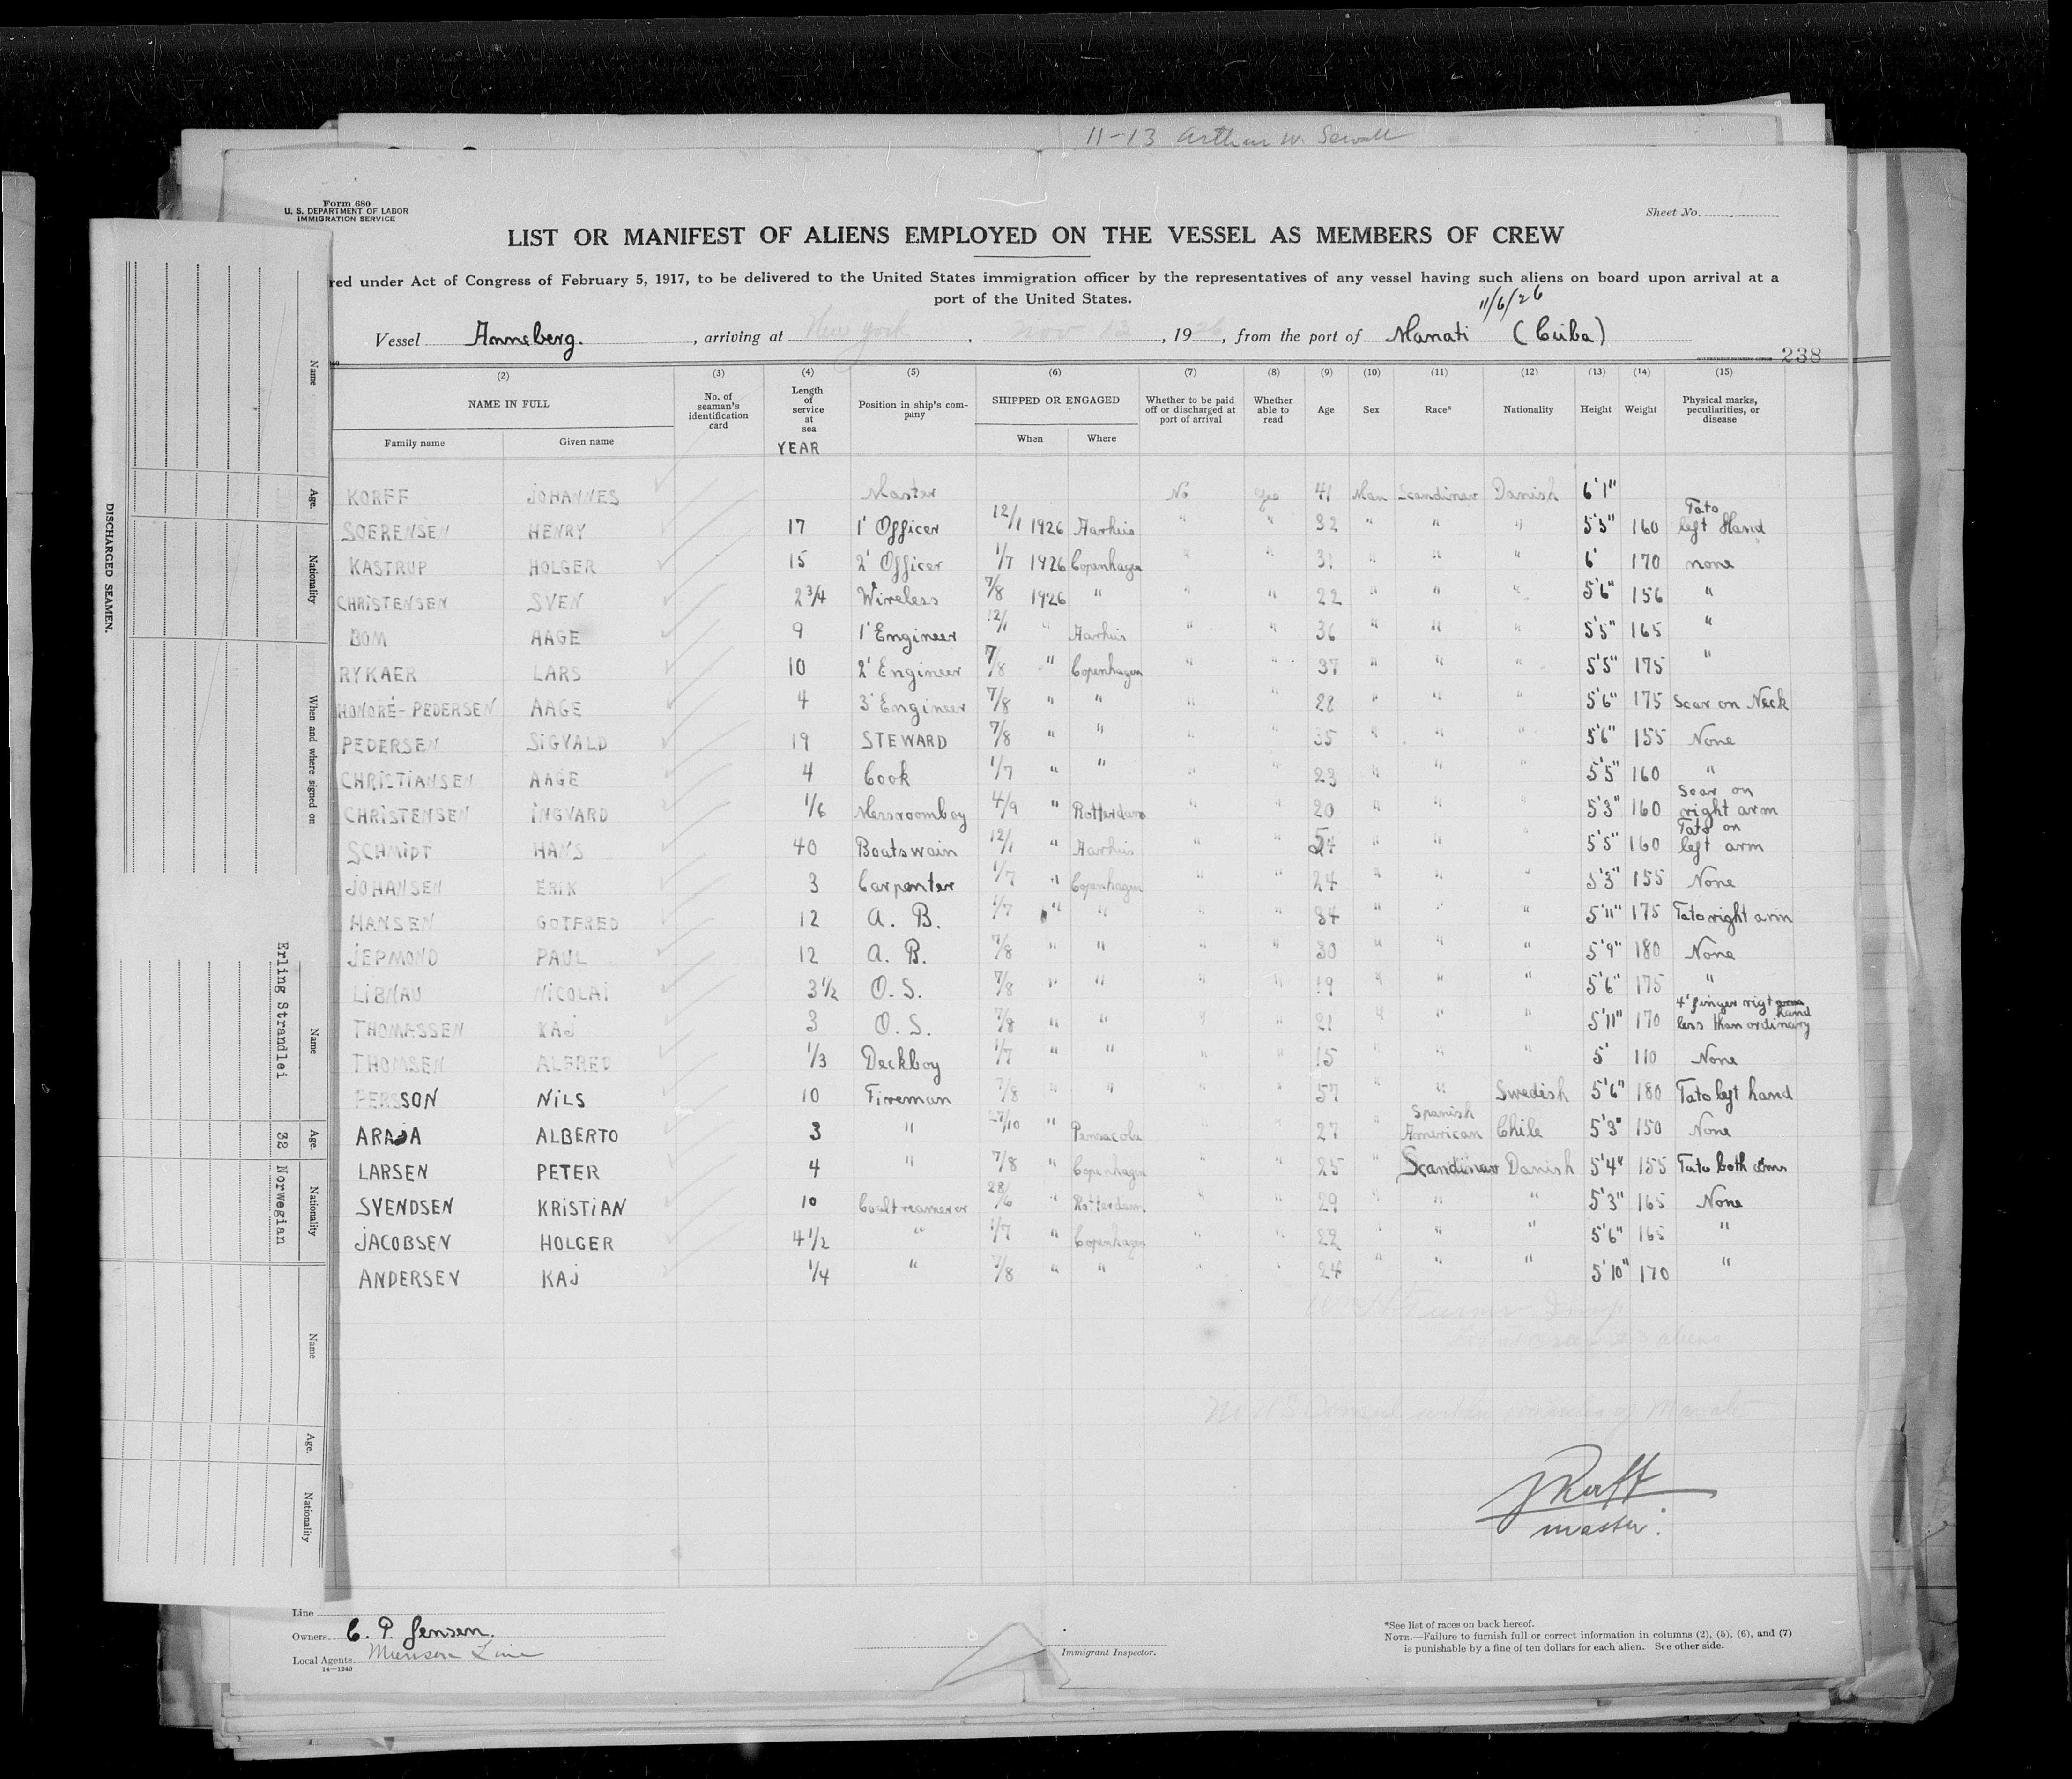 11-13 Arthur W. Sewall
Form 680
U. S. DEPARTMENT OF LABOR
IMMIGRATION SERVICE
Sheet No.
LIST OR MANIFEST OF ALIENS EMPLOYED ON THE VESSEL AS MEMBERS OF CREW
red under Act of Congress of February 5, 1917, to be delivered to the United States immigration officer by the representatives of any vessel having such aliens on board upon arrival at a
port of the United States.
11/6/26
Vessel Anneberg. , arriving at New York , Nov 13 , 1926, from the port of Manati (Cuba)
238
(2) (3) (4) (5) (6) (7) (8) (9) (10) (11) (12) (13) (14) (15)
NAME IN FULL No. of seaman's identification card Length of service at sea Position in ship's company SHIPPED OR ENGAGED Whether to be paid off or discharged at port of arrival Whether able to read Age Sex Race* Nationality Height Weight Physical marks, peculiarities, or disease
Family name Given name YEAR When Where
KORFF JOHANNES Master No Yes 41 Man Scandinav Danish 6'1"
SOERENSEN HENRY 17 1' Officer 12/1 1926 Aarhuis " " 32 " " " 5'5" 160 Tato left Hand
KASTRUP HOLGER 15 2' Officer 1/7 1926 Copenhagen " " 31 " " " 6' 170 none
CHRISTENSEN SVEN 2 3/4 Wireless 7/8 1926 " " " 22 " " " 5'6" 156 "
BOM AAGE 9 1' Engineer 12/1 " Aarhuis " " 36 " " " 5'5" 165 "
RYKAER LARS 10 2' Engineer 7/8 " Copenhagen " " 37 " " " 5'5" 175 "
HONORÉ-PEDERSEN AAGE 4 3' Engineer 7/8 " " " " 28 " " " 5'6" 175 Scar on Neck
PEDERSEN SIGVALD 19 STEWARD 7/8 " " " " 35 " " " 5'6" 155 None
CHRISTIANSEN AAGE 4 Cook 1/7 " " " " 23 " " " 5'5" 160 "
CHRISTENSEN INGVARD 1/6 Messroomboy 4/9 " Rotterdam " " 20 " " " 5'3" 160 Scar on right arm
SCHMIDT HANS 40 Boatswain 12/1 " Aarhuis " " 54 " " " 5'5" 160 Tato on left arm
JOHANSEN ERIK 3 Carpenter 1/7 " Copenhagen " " 24 " " " 5'3" 155 None
HANSEN GOTFRED 12 A. B. 1/7 " " " " 34 " " " 5'11" 175 Tato right arm
JEPMOND PAUL 12 A. B. 7/8 " " " " 30 " " " 5'9" 180 None
LIBNAU NICOLAI 3 1/2 O. S. 7/8 " " " " 19 " " " 5'6" 175 "
THOMASSEN KAJ 3 O. S. 7/8 " " " " 21 " " " 5'11" 170 4' finger rigt hand less than ordinary
THOMSEN ALFRED 1/3 Deckboy 1/7 " " " " 15 " " " 5' 110 None
PERSSON NILS 10 Fireman 7/8 " " " " 57 " " Swedish 5'6" 180 Tato left hand
ARAJA ALBERTO 3 " 27/10 " Pensacola " " 27 " Spanish American Chile 5'3" 150 None
LARSEN PETER 4 " 7/8 " Copenhagen " " 25 " Scandinav Danish 5'4" 155 Tato both arms
SVENDSEN KRISTIAN 10 Coaltreameror 28/6 " Rotterdam " " 29 " " " 5'3" 165 None
JACOBSEN HOLGER 4 1/2 " 1/7 " Copenhagen " " 22 " " " 5'6" 165 "
ANDERSEN KAJ 1/4 " 7/8 " " " " 24 " " " 5'10" 170 "
23 aliens
Consul Manati
J Korff
master.
Line
Owners C. P. Jensen.
Local Agents Munson Line
14—1240
Immigrant Inspector.
*See list of races on back hereof.
NOTE.—Failure to furnish full or correct information in columns (2), (5), (6), and (7)
is punishable by a fine of ten dollars for each alien. See other side.
DISCHARGED SEAMEN.
Name Age. Nationality When and where signed on
Erling Strandlei 32 Norwegian
Name Age. Nationality
Name Age. Nationality